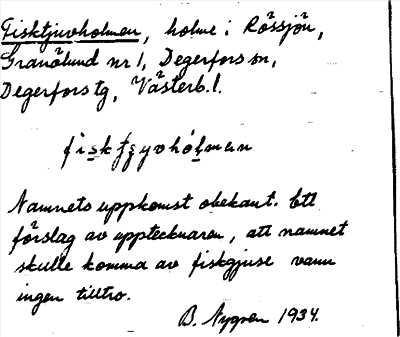 Fisktjuvholmen, holme i Rössjön,
Granölund nr 1, Degerfors sn,
Degerfors tg, Västerb. l.
fisktjyvhólman
Namnets uppkomst obekant. Ett
förslag av upptecknaren, att namnet
skulle komma av fiskgjuse vann
ingen tilltro.
B. Nygren 1934.